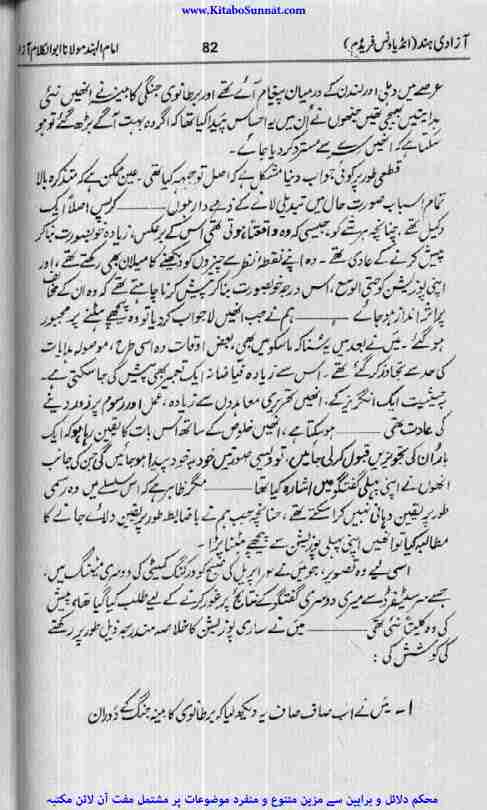 www.KitaboSunnat.com
آزادی ہند (انڈیا ونس فریڈم)
82
امام الہند مولانا ابوالکلام آزاد
عرصے میں دہلی اور لندن کے درمیان پیغام آئے تھے اور برطانوی جنگی کابینہ نے انھیں نئی
ہدایتیں بھیجی تھیں جنھوں نے اُن میں یہ احساس پیدا کیا تھا کہ اگر وہ بہت آگے بڑھ گئے تو ہو
سکتا ہے کہ انھیں سرے سے مسترد کر دیا جائے۔
قطعی طور پر کوئی جواب دینا مشکل ہے کہ اصل توجیہہ کیا تھی۔ عین ممکن ہے کہ متذکرہ بالا
تمام اسباب صورت حال میں تبدیلی لانے کے ذمے دار ہوں ــــــ کرپس اصلاً ایک
وکیل تھے، چنانچہ ہر شے کو، جیسی کہ وہ واقعتاً ہوتی تھی اس کے برعکس، زیادہ خوبصورت بنا کر
پیش کرنے کے عادی تھے۔ وہ اپنے نقطۂ نظر سے چیزوں کو دیکھنے کا میلان بھی رکھتے تھے، اور
اپنی پوزیشن کو حتی الوسع، اس درجہ خوبصورت بنا کر پیش کرنا چاہتے تھے کہ وہ ان کے مخالف
پر اثر انداز ہو جائے ــــــ ہم نے جب انھیں لاجواب کر دیا تو وہ پیچھے ہٹنے پر مجبور
ہو گئے۔ میں نے بعد میں یہ سنا کہ ماسکو میں بھی، بعض اوقات وہ اسی طرح، موصولہ ہدایات
کی حد سے تجاوز کر گئے تھے۔ اس سے زیادہ فیاضانہ ایک تعبیر بھی پیش کی جا سکتی ہے۔
بحیثیت ایک انگریز کے، انھیں تحریری معاہدوں سے زیادہ، عمل اور رسوم پر زور دینے
کی عادت تھی ــــــ ہو سکتا ہے، انھیں خلوص کے ساتھ اس بات کا یقین رہا ہو کہ ایک
بار اُن کی تجویزیں قبول کر لی جائیں، تو ویسی صورتیں خود بہ خود پیدا ہو جائیں گی جن کی جانب
انھوں نے اپنی پہلی گفتگو میں اشارہ کیا تھا ــــــ مگر ظاہر ہے کہ اس سلسلے میں وہ رسمی
طور پر یقین دہانی نہیں کرا سکتے تھے، چنانچہ جب ہم نے باضابطہ طور پر یقین دلائے جانے کا
مطالبہ کیا تو انھیں اپنی پہلی پوزیشن سے پیچھے ہٹنا پڑا۔
اسی لیے وہ تصویر، جو میں نے اپریل کی صبح کو ورکنگ کمیٹی کی دوسری میٹنگ میں،
جسے سر سٹیفرڈ سے میری دوسری گفتگو کے نتائج پر غور کرنے کے لیے طلب کیا گیا تھا، پیش
کی وہ کلیتاً نئی تھی ــــــ میں نے ساری پوزیشن کا خلاصہ مندرجہ ذیل طور پر رکھنے
کی کوشش کی:
۱۔ میں نے اب صاف صاف یہ دیکھ لیا کہ برطانوی کابینہ جنگ کے دوران
محکم دلائل و براہین سے مزین متنوع و منفرد موضوعات پر مشتمل مفت آن لائن مکتبہ